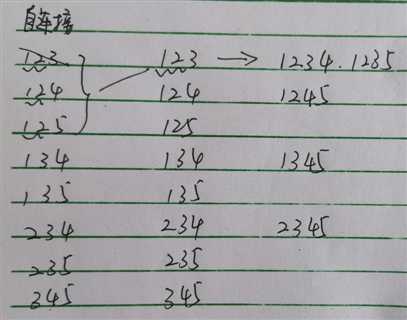 自连接
123 123 → 1234.1235
124 124 1245
125 125
134 134 1345
135 135
234 234 2345
235 235
345 345